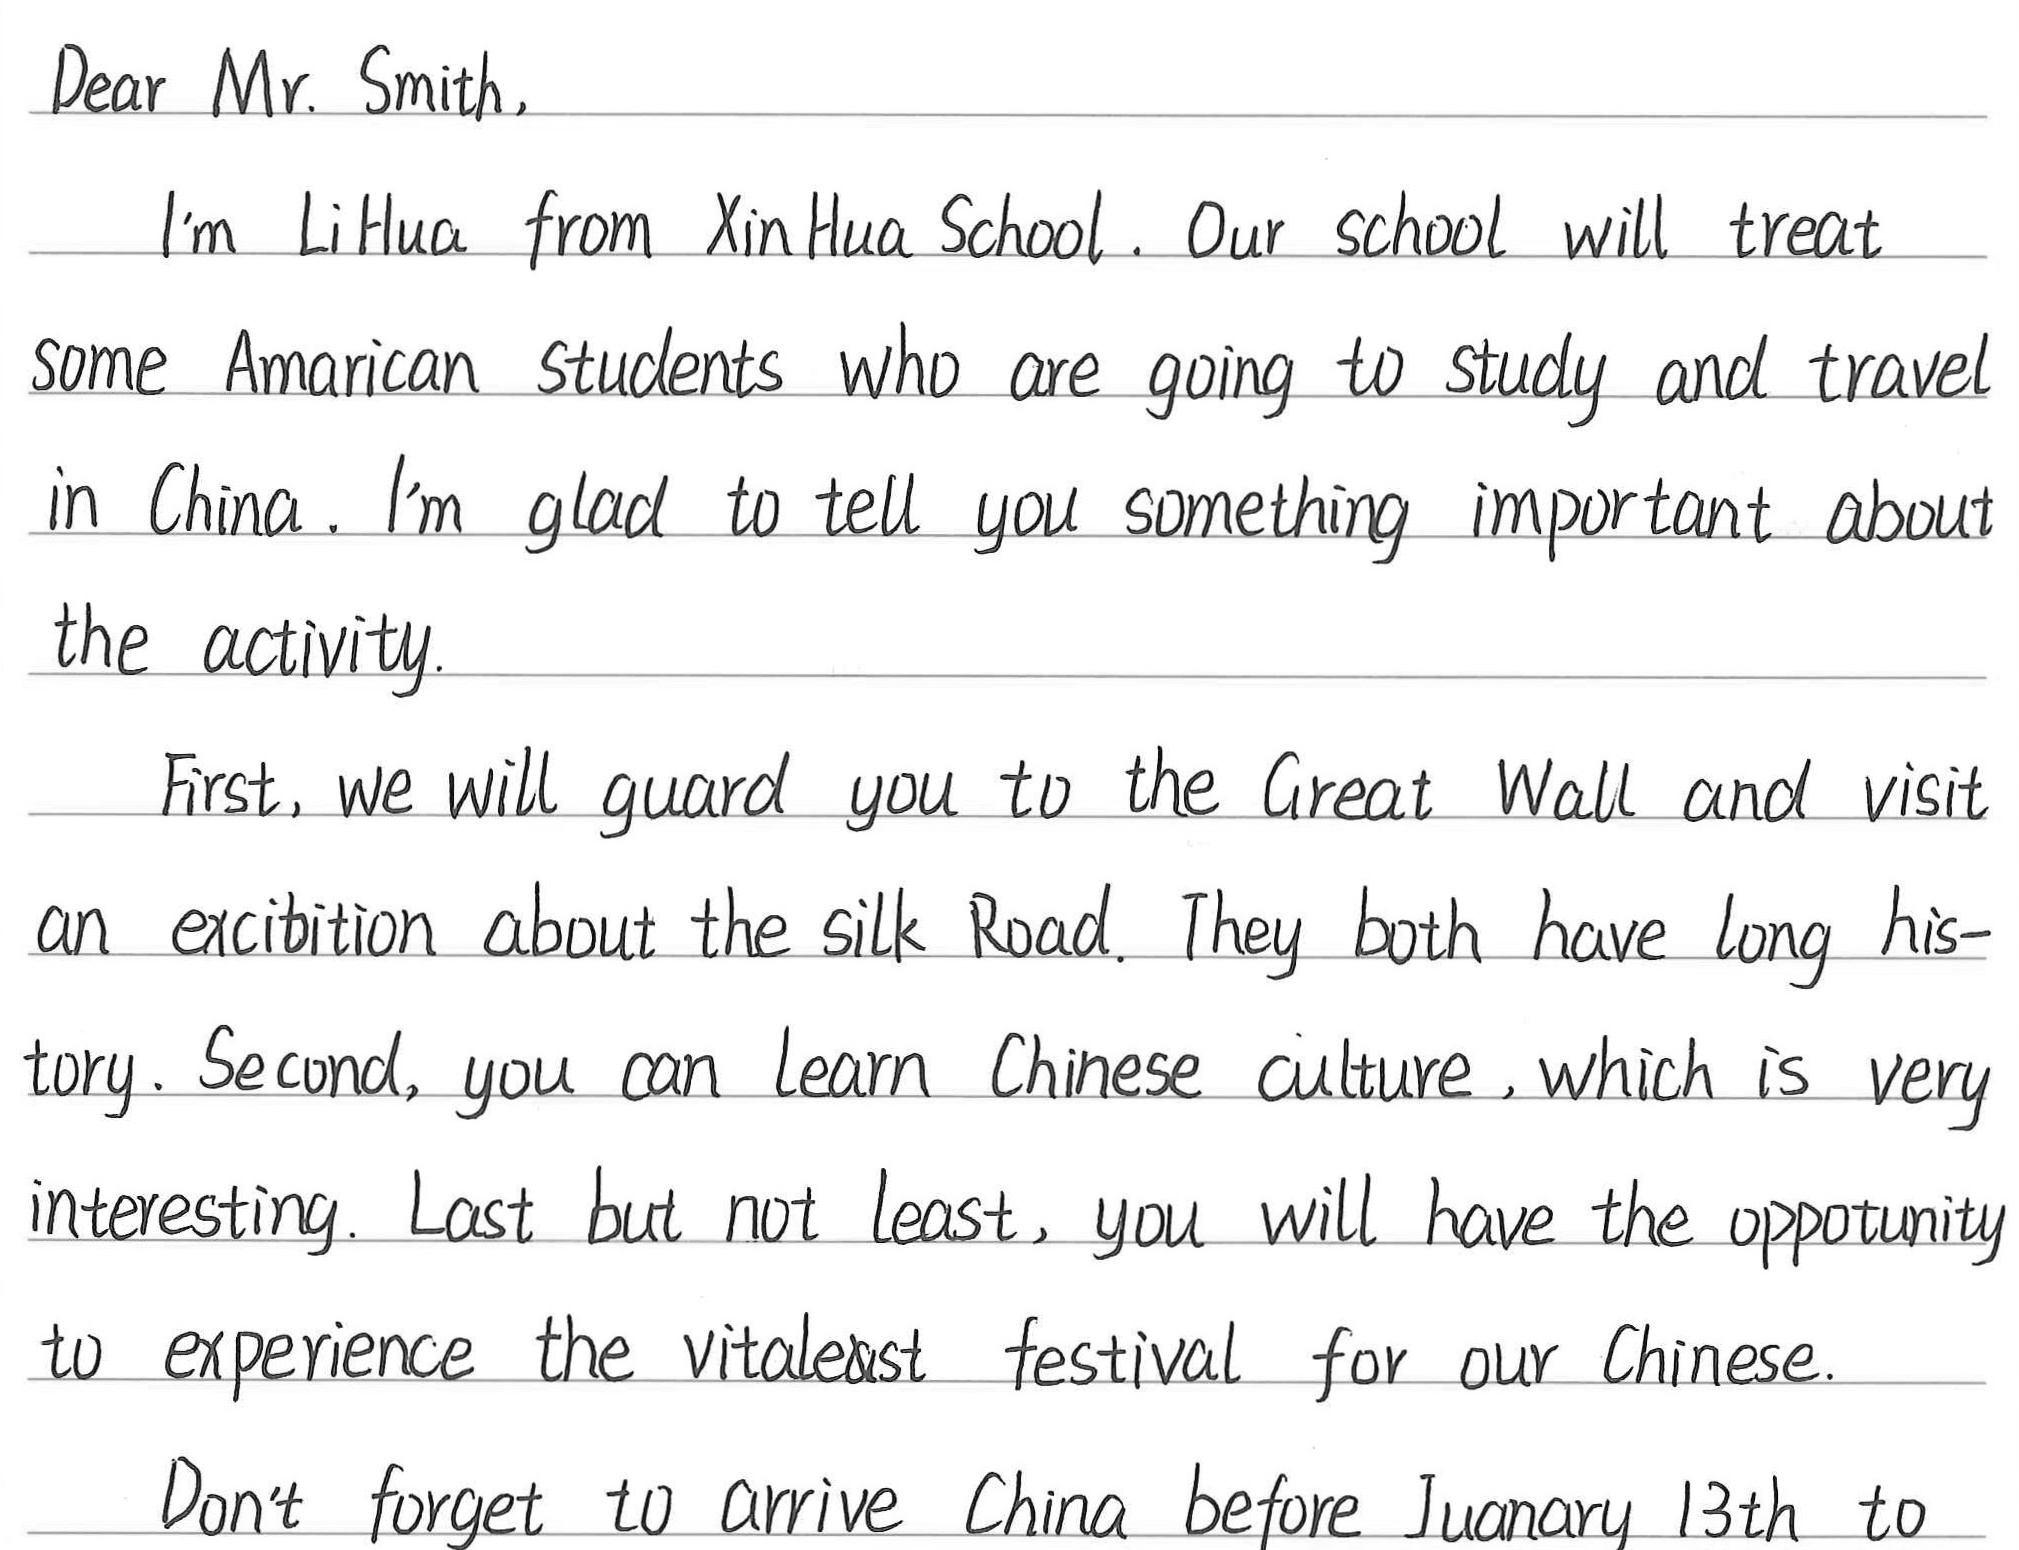 Dear Mr. Smith,
I'm Li Hua from Xin Hua School. Our school will treat
some Amarican students who are going to study and travel
in China. I'm glad to tell you something important about
the activity.
First, we will guard you to the Great Wall and visit
an excibition about the silk Road. They both have long his-
tory. Second, you can learn Chinese culture, which is very
interesting. Last but not least, you will have the oppotunity
to experience the festival for our Chinese.
Don't forget to arrive China before Juanary 13th to